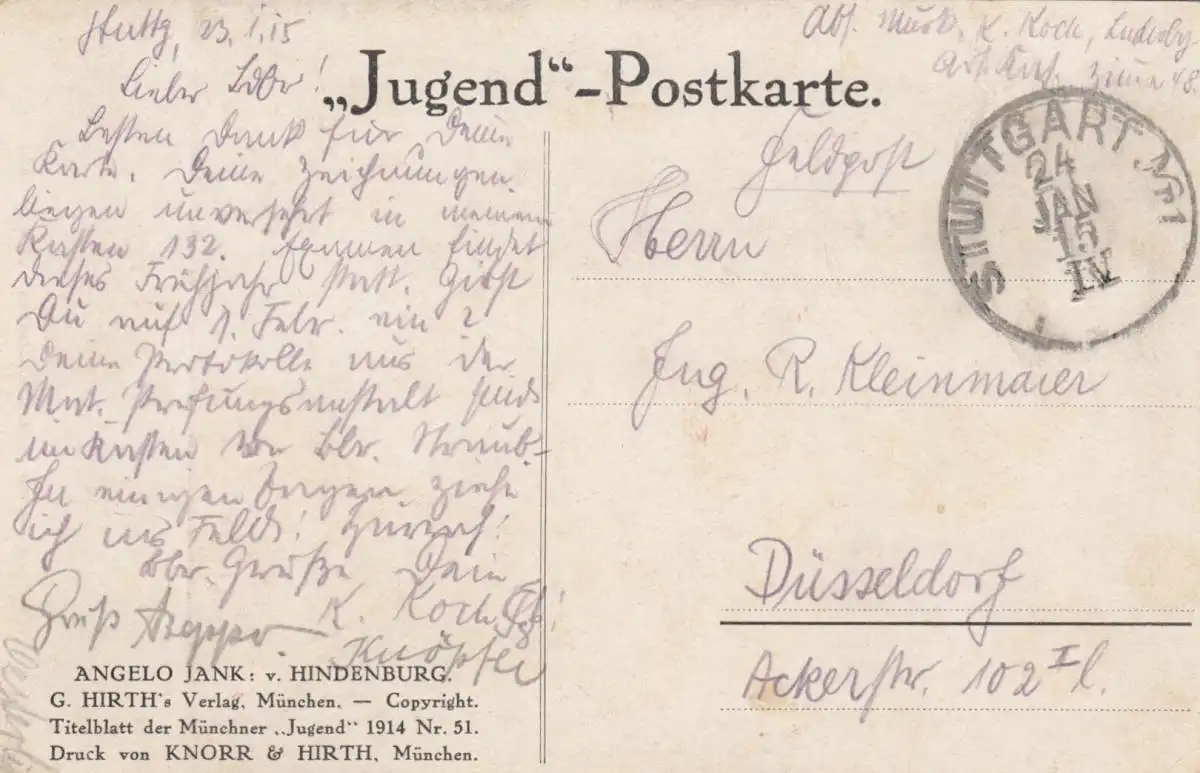 Stuttg, 23.I.15
Lieber
Besten Dank für Deine
Karte. Deine Zeichnungen
liegen unversehrt in meinem
Kasten 132. Examen findet
dieses Frühjahr statt. Gibst
Du auf 1. Febr. ein?
Deine Protokolle aus der
Mat. Prüfungsanstalt sind
im Kasten von Bbr. Straub.
In einigen Tagen ziehe
ich ins Feld! Hurrah!
Bbr. Grüße Dein
K. Koch
Gruß
Knöpfle
ANGELO JANK: v. HINDENBURG.
G. HIRTH's Verlag, München. — Copyright.
Titelblatt der Münchner „Jugend“ 1914 Nr. 51.
Druck von KNORR & HIRTH, München.
„Jugend“-Postkarte.
Abs. Musk. K. Koch, Ludwbg
48.
Feldpost
STUTTGART Nr 1
24
JAN
15
IV
Herrn
Ing. R. Kleinmaier
Düsseldorf
Ackerstr. 102 I l.